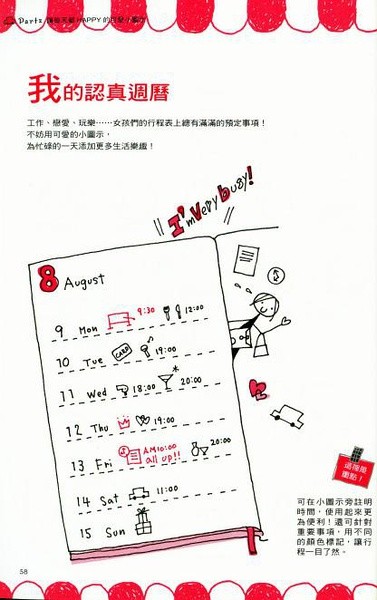 我的認真週曆
工作、戀愛、玩樂……女孩們的行程表上總有滿滿的預定事項！
不妨用可愛的小圖示，
為忙碌的一天添加更多生活樂趣！
I'm Very busy!
8 August
9 Mon 9:30 12:00
10 Tue CARD 19:00
11 Wed 18:00 20:00
12 Thu 19:00
13 Fri AM10:00 20:00
all up!!
14 Sat 11:00
15 Sun
重點！
可在小圖示旁註明
時間，使用起來更
為便利！還可針對
重要事項，用不同
的顏色標記，讓行
程一目了然。
58